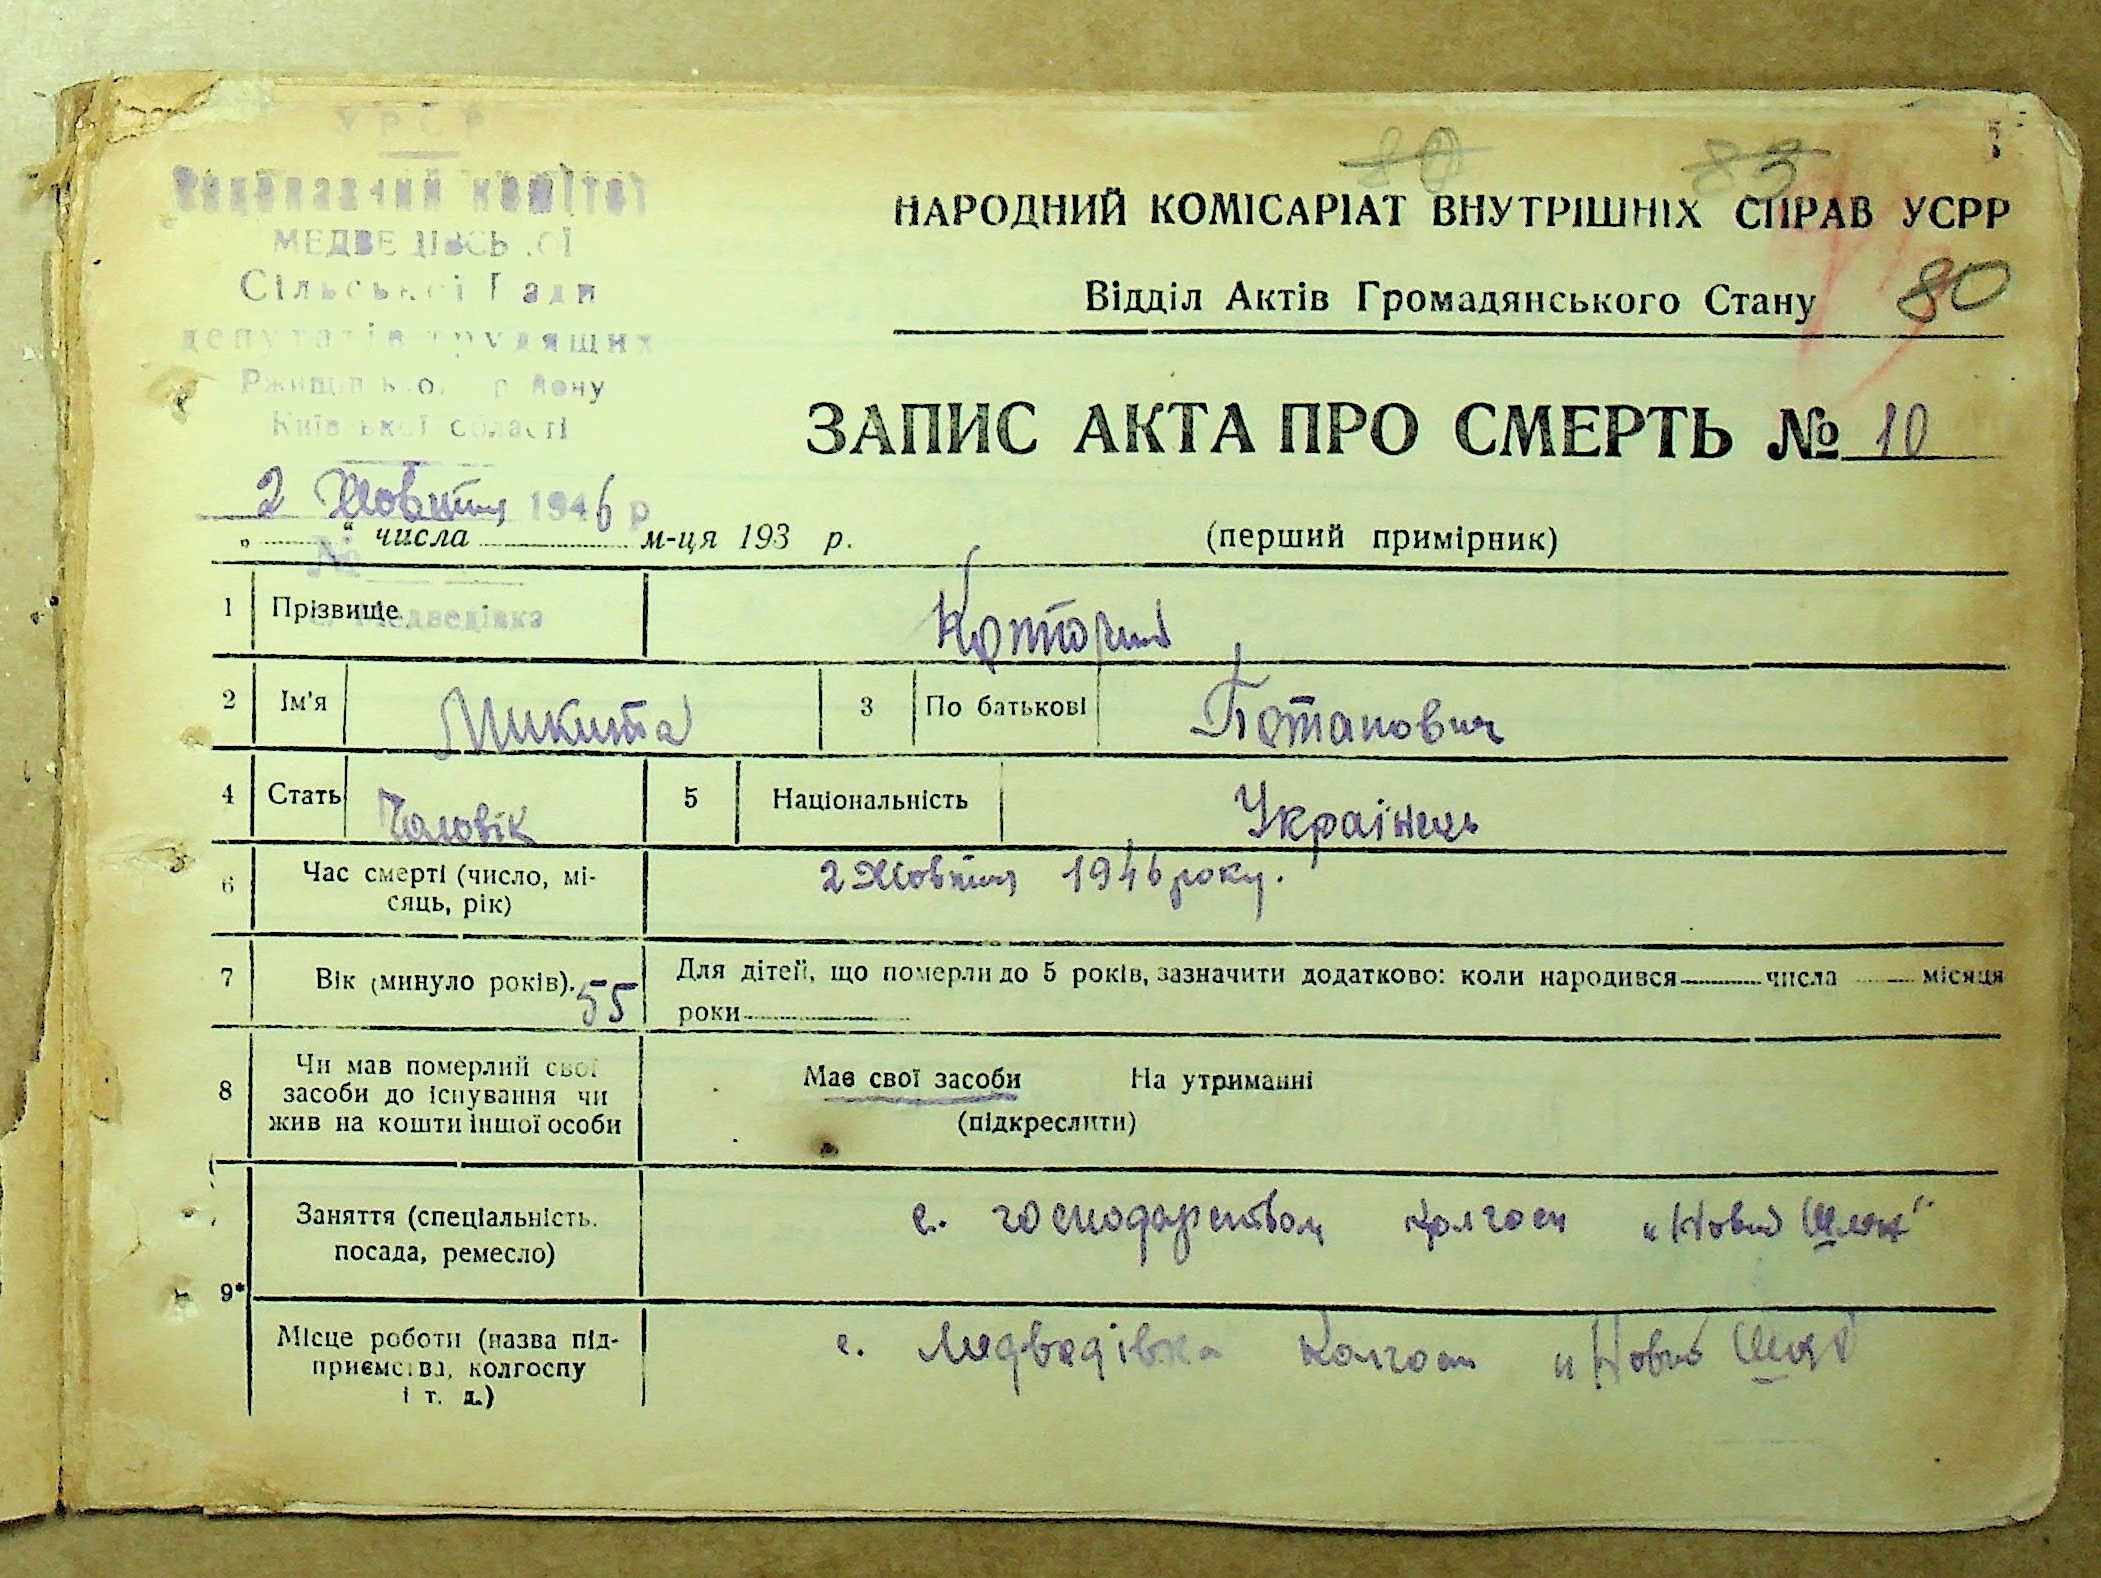 УРСР
Виконавчий комітет
МЕДВЕДІВСЬКОЇ
Сільської Ради
депутатів трудящих
Ржищівського району
Київської області
2 Жовтня 1946 р
№
с. Медведівка
80 83
НАРОДНИЙ КОМІСАРІАТ ВНУТРІШНІХ СПРАВ УСРР
Відділ Актів Громадянського Стану 80
ЗАПИС АКТА ПРО СМЕРТЬ № 10
„ “ числа м-ця 193 р. (перший примірник)
1 Прізвище
2 Ім'я Микита 3 По батькові Потапович
4 Стать Чоловік 5 Національність Українець
6 Час смерті (число, мі-
сяць, рік) 2 Жовтня 1946 року.
7 Вік (минуло років). 55 Для дітей, що померли до 5 років, зазначити додатково: коли народився числа місяця
роки
8 Чи мав померлий свої
засоби до існування чи
жив на кошти іншої особи
Має свої засоби На утриманні
(підкреслити)
9*
Заняття (спеціальність.
посада, ремесло) с. господарством колгосп „Новий Шлях“
Місце роботи (назва під-
приємства, колгоспу
і т. д.) с. Медведівка Колгосп „Новий Шлях